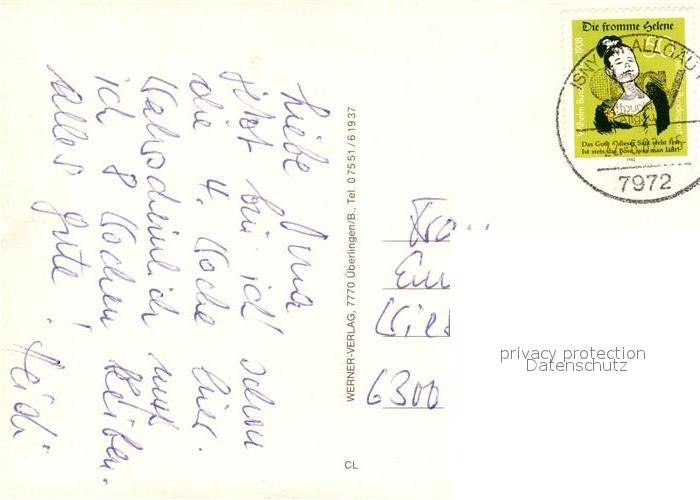 Liebe Oma
jetzt bin ich schon
die 4. Woche hier.
Wahrscheinlich muß
ich 8 Wochen bleiben.
Alles Gute!
Heidi
WERNER-VERLAG, 7770 Überlingen/B., Tel. 07551/61937
CL
Die fromme Helene
Wilhelm 1908
Das Gute – dieser Satz steht fest –
Ist stets das Böse, was man läßt!
1982
ISNY ALLGÄU
7972
Frau
6300
privacy protection
Datenschutz